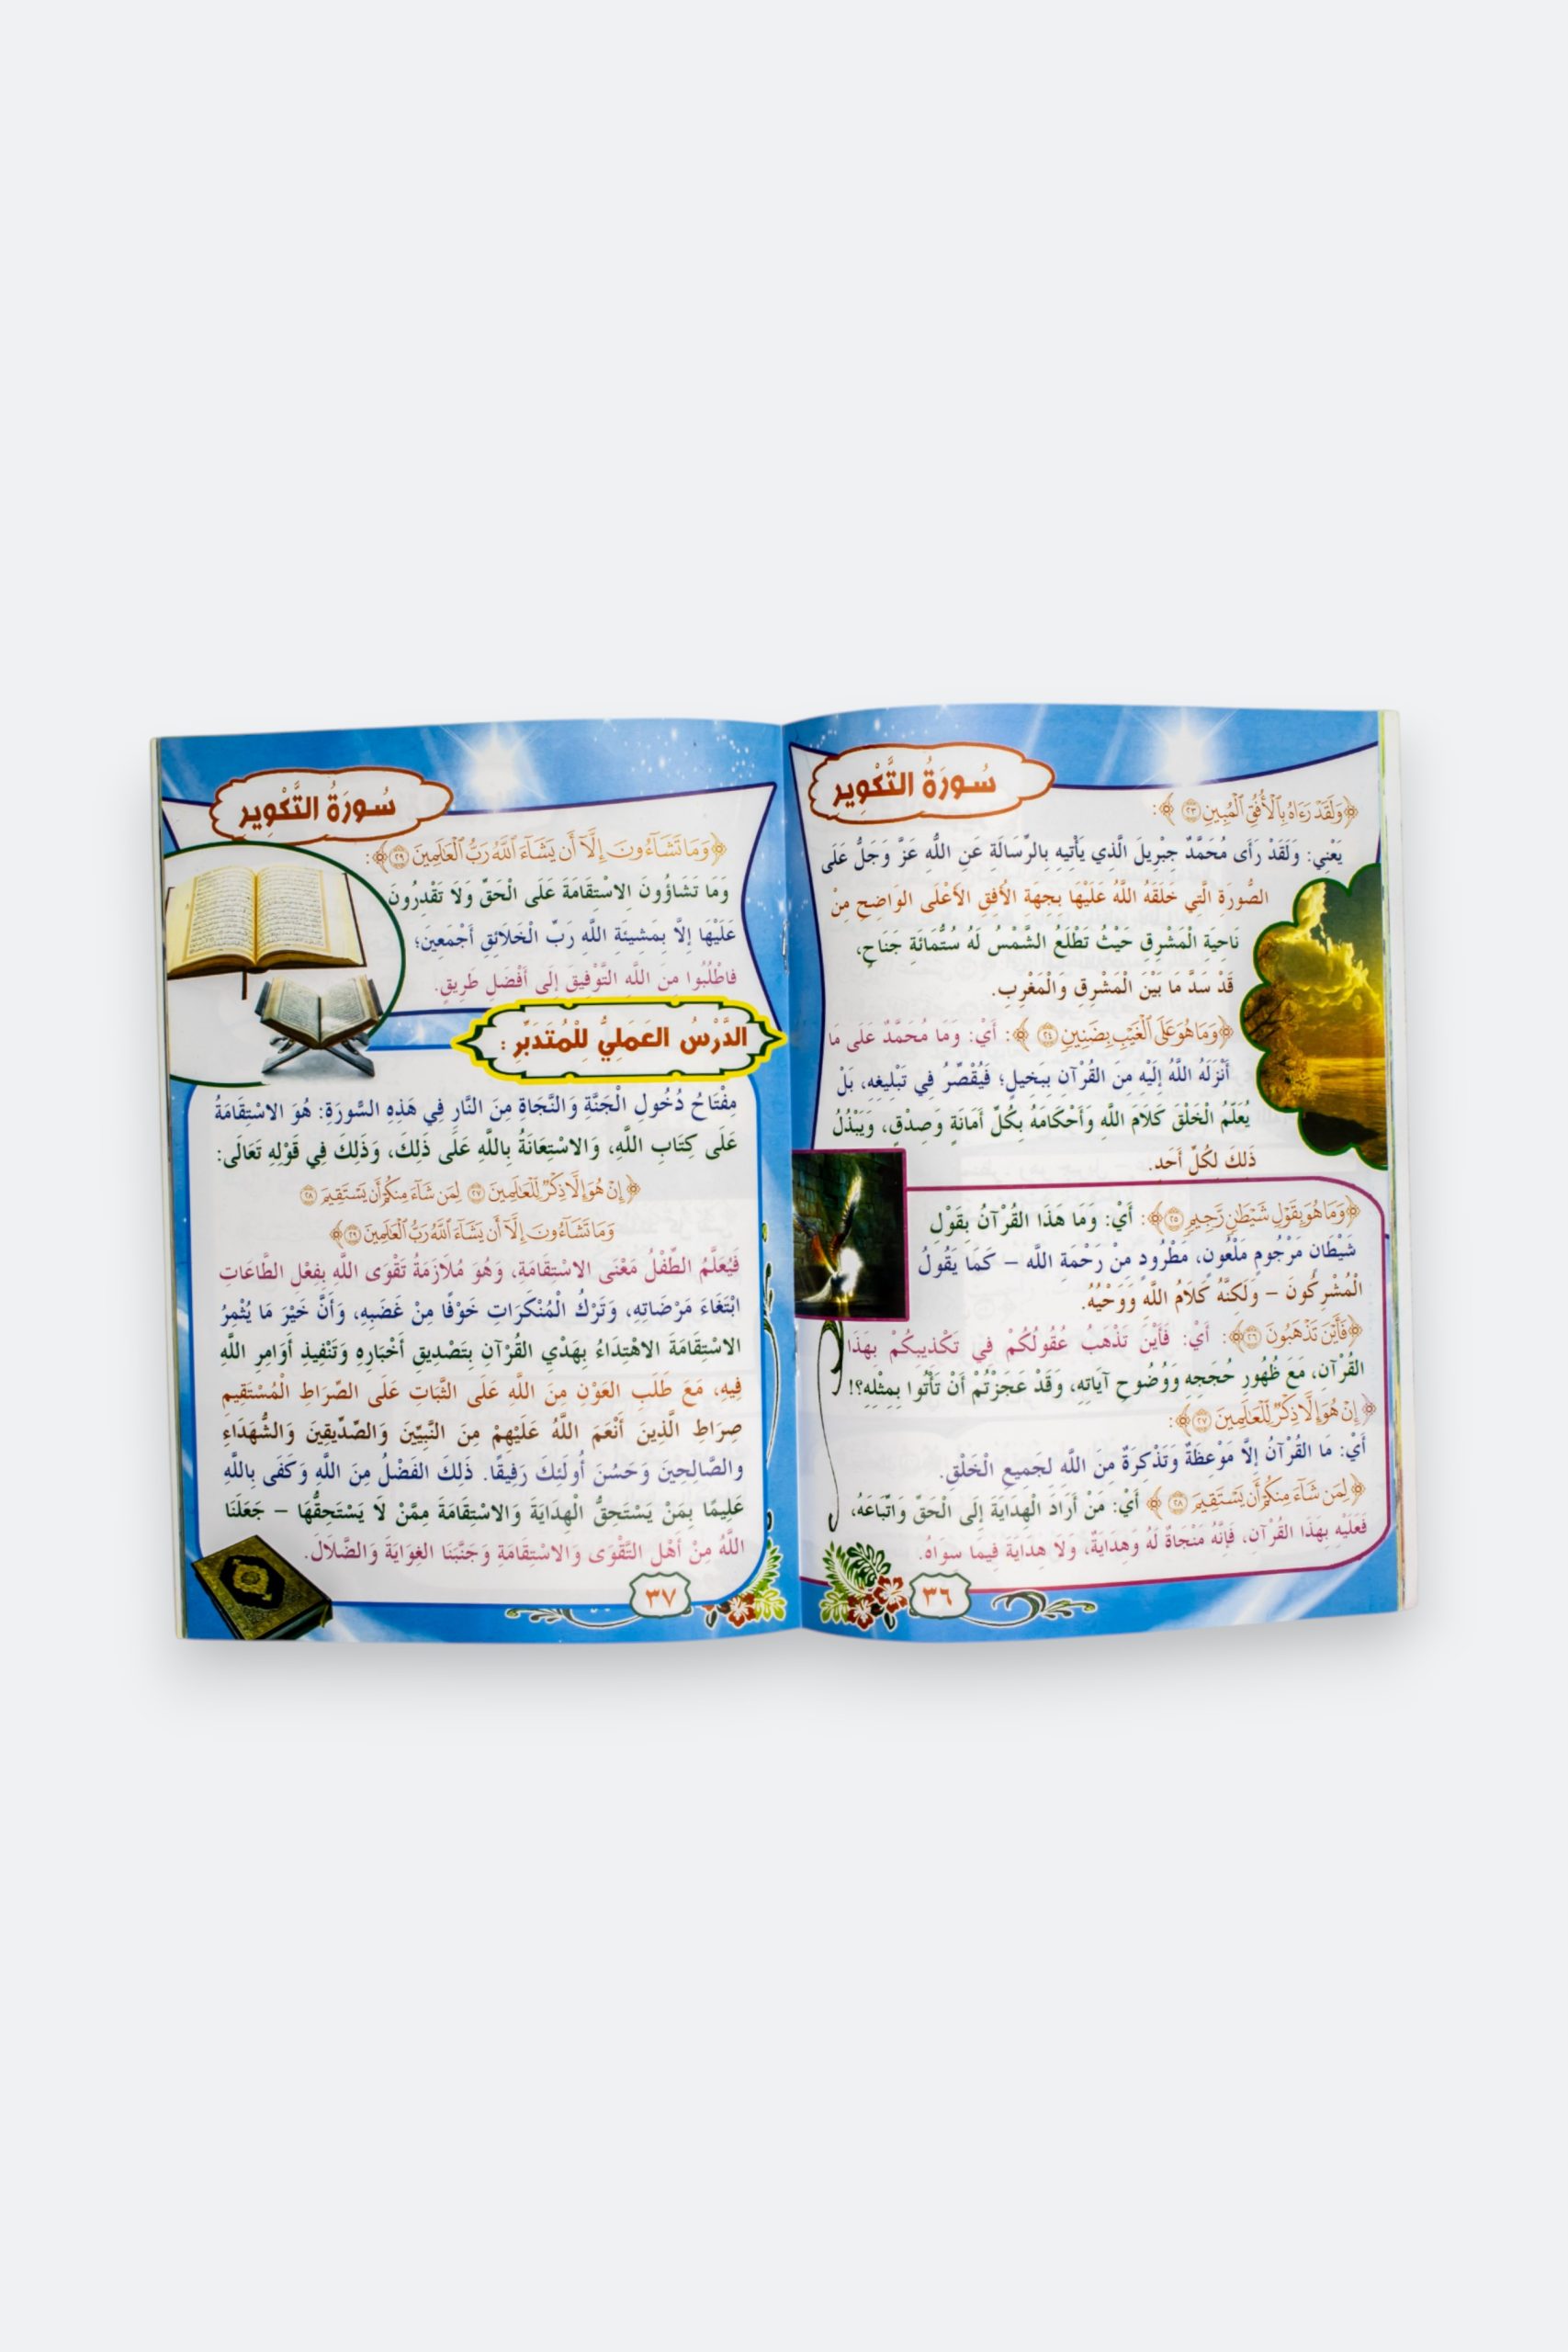 سُورَةُ التَّكْوِيرِ
﴿وَلَقَدْ رَءَاهُ بِٱلْأُفُقِ ٱلْمُبِينِ ٢٣﴾:
يَعْنِي: وَلَقَدْ رَأَى مُحَمَّدٌ جِبْرِيلَ الَّذِي يَأْتِيهِ بِالرِّسَالَةِ عَنِ اللَّهِ عَزَّ وَجَلَّ عَلَى
الصُّورَةِ الَّتِي خَلَقَهُ اللَّهُ عَلَيْهَا بِجِهَةِ الأُفِقِ الأَعْلَى الوَاضِحِ مِنْ
نَاحِيَةِ الْمَشْرِقِ حَيْثُ تَطْلَعُ الشَّمْسُ لَهُ سُتُّمَائَةِ جَنَاحٍ،
قَدْ سَدَّ مَا بَيْنَ الْمَشْرِقِ وَالْمَغْرِبِ.
﴿وَمَا هُوَ عَلَى ٱلْغَيْبِ بِضَنِينٍ ٢٤﴾: أَيْ: وَمَا مُحَمَّدٌ عَلَى مَا
أَنْزَلَهُ اللَّهُ إِلَيْهِ مِنَ القُرْآنِ بِبَخِيلٍ؛ فَيُقْصِّرُ فِي تَبْلِيغِهِ، بَلْ
يُعَلِّمُ الْخَلْقَ كَلَامَ اللَّهِ وَأَحْكَامَهُ بِكُلِّ أَمَانَةٍ وَصِدْقٍ، وَيَبْذُلُ
ذَلِكَ لِكُلِّ أَحَدٍ.
﴿وَمَا هُوَ بِقَوْلِ شَيْطَٰنٍ رَّجِيمٍ ٢٥﴾: أَيْ: وَمَا هَذَا القُرْآنُ بِقَوْلِ
شَيْطَانٍ مَرْجُومٍ مَلْعُونٍ، مَطْرُودٍ مِنْ رَحْمَةِ اللَّه – كَمَا يَقُولُ
الْمُشْرِكُونَ – وَلَكِنَّهُ كَلَامُ اللَّهِ وَوَحْيُهُ.
﴿فَأَيْنَ تَذْهَبُونَ ٢٦﴾: أَيْ: فَأَيْنَ تَذْهَبُ عُقُولُكُمْ فِي تَكْذِيبِكُمْ بِهَذَا
القُرْآنِ، مَعَ ظُهُورِ حُجَجِهِ وَوُضُوحِ آيَاتِهِ، وَقَدْ عَجَزْتُمْ أَنْ تَأْتُوا بِمِثْلِهِ؟!
﴿إِنْ هُوَ إِلَّا ذِكْرٌ لِّلْعَٰلَمِينَ ٢٧﴾:
أَيْ: مَا القُرْآنُ إِلَّا مَوْعِظَةٌ وَتَذْكِرَةٌ مِنَ اللَّهِ لِجَمِيعِ الْخَلْقِ.
﴿لِمَن شَآءَ مِنكُمْ أَن يَسْتَقِيمَ ٢٨﴾ أَيْ: مَنْ أَرَادَ الْهِدَايَةَ إِلَى الْحَقِّ وَاتِّبَاعَهُ،
فَعَلَيْهِ بِهَذَا القُرْآنِ، فَإِنَّهُ مَنْجَاةٌ لَهُ وَهِدَايَةٌ، وَلَا هِدَايَةَ فِيمَا سِوَاهُ.
٣٦
سُورَةُ التَّكْوِيرِ
﴿وَمَا تَشَآءُونَ إِلَّآ أَن يَشَآءَ ٱللَّهُ رَبُّ ٱلْعَٰلَمِينَ ٢٩﴾:
وَمَا تَشَاؤُونَ الِاسْتِقَامَةَ عَلَى الْحَقِّ وَلَا تَقْدِرُونَ
عَلَيْهَا إِلَّا بِمَشِيئَةِ اللَّهِ رَبِّ الْخَلَائِقِ أَجْمَعِينَ؛
فَاطْلُبُوا مِنَ اللَّهِ التَّوْفِيقَ إِلَى أَفْضَلِ طَرِيقٍ.
الدَّرْسُ العَمَلِيُّ لِلْمُتَدَبِّرِ :
مِفْتَاحُ دُخُولِ الْجَنَّةِ وَالنَّجَاةِ مِنَ النَّارِ فِي هَذِهِ السُّورَةِ: هُوَ الِاسْتِقَامَةُ
عَلَى كِتَابِ اللَّهِ، وَالِاسْتِعَانَةُ بِاللَّهِ عَلَى ذَلِكَ، وَذَلِكَ فِي قَوْلِهِ تَعَالَى:
﴿إِنْ هُوَ إِلَّا ذِكْرٌ لِّلْعَٰلَمِينَ ٢٧ لِمَن شَآءَ مِنكُمْ أَن يَسْتَقِيمَ ٢٨
وَمَا تَشَآءُونَ إِلَّآ أَن يَشَآءَ ٱللَّهُ رَبُّ ٱلْعَٰلَمِينَ ٢٩﴾
فَيُعَلَّمُ الطِّفْلُ مَعْنَى الِاسْتِقَامَةِ، وَهُوَ مُلَازَمَةُ تَقْوَى اللَّهِ بِفِعْلِ الطَّاعَاتِ
ابْتِغَاءَ مَرْضَاتِهِ، وَتَرْكُ الْمُنْكَرَاتِ خَوْفًا مِنْ غَضَبِهِ، وَأَنَّ خَيْرَ مَا يُثْمِرُ
الِاسْتِقَامَةَ الِاهْتِدَاءُ بِهَدْيِ القُرْآنِ بِتَصْدِيقِ أَخْبَارِهِ وَتَنْفِيذِ أَوَامِرِ اللَّهِ
فِيهِ، مَعَ طَلَبِ العَوْنِ مِنَ اللَّهِ عَلَى الثَّبَاتِ عَلَى الصِّرَاطِ الْمُسْتَقِيمِ
صِرَاطِ الَّذِينَ أَنْعَمَ اللَّهُ عَلَيْهِمْ مِنَ النَّبِيِّينَ وَالصِّدِّيقِينَ وَالشُّهَدَاءِ
وَالصَّالِحِينَ وَحَسُنَ أُولَئِكَ رَفِيقًا. ذَلِكَ الفَضْلُ مِنَ اللَّهِ وَكَفَى بِاللَّهِ
عَلِيمًا بِمَنْ يَسْتَحِقُّ الْهِدَايَةَ وَالِاسْتِقَامَةَ مِمَّنْ لَا يَسْتَحِقُّهَا – جَعَلَنَا
اللَّهُ مِنْ أَهْلِ التَّقْوَى وَالِاسْتِقَامَةِ وَجَنَّبَنَا الغِوَايَةَ وَالضَّلَالَ.
٣٧